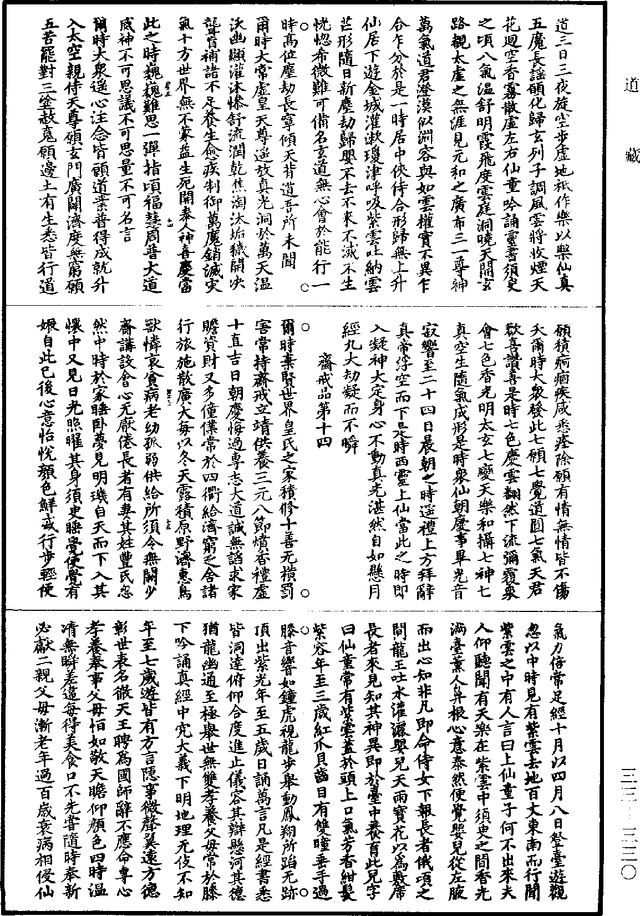 道藏
道三日三夜旋空步虛地祇作樂以樂仙真
五魔長謠頌化歸玄列子調風雲將收煙天
花迴空香霧散虛左右仙童吟誦靈書須臾
之頃八氣溫舒明霞飛度雲庭洞曉天開玄
路觀太虛之無涯見元和之廣布三一尊神
萬氣道君澄漠似淵容與如雲權實不異乍
合乍分於是一時居中俠侍合形歸無上升
仙居下遊金城灌漱瓊津呼吸紫雲吐納雲
芒形隨日新塵劫歸嬰不去不來不滅不生
恍惚希微難可備名玄道無心會於能行一
時高位塵劫長寧傾天背道吾所未聞
爾時大常虛皇天尊遥放真光洞於萬天溫
沃幽顯灌沐慘舒流潤乾焦淘汰垢穢開決
聾盲補諸不足養生愈疾制御萬魔銷滅灾
氣十方世界無不蒙益生死開泰人神喜慶當
此之時巍巍難思一彈指頃福慧周普大道
威神不可思議不可思量不可名言
爾時大衆遥心注念皆願道業普得成就升
入太空親侍天尊願玄門廣開濟度無窮願
五苦罷對三塗赦魂願邊土有生悉皆行道
願積痾痼疾咸悉痊除願有情無情皆不傷
夭爾時大衆發此七願七覺道圓七氣天君
歡喜讚善是時七色慶雲翻然下流彌覆衆
會七色香光明太玄七變天樂和攝七神七
真空生隨氣成形是時衆仙朝慶事畢光音
寂響至二十四日晨朝之時遥禮上方拜辭
真帝浮空而下是時西靈上仙當此之時即
入凝神大定身心不動真光湛然自如懸月
經九大劫凝而不瞬
齋戒品第十四
爾時棄賢世界皇氏之家積修十善无橫罰
害常持齋戒立靖供養三元八節燒香禮虛
十直吉日朝慶悔過專志大道誠無諂求家
贍資財又多僮僕常於四衢給濟窮乏舍諸
行旅施散廣大每以冬天露積原野濟惠鳥
獸憐哀貧病老幼孤弱供給所須令無闕少
齋講設會心无厭倦長者有妻其姓豐民忽
然中時於家睡卧夢見明璣自天而下入其
懷中又見日光照曜其身須臾睡覺便覺有
娠自此已後心意怡悅顏色鮮盛行步輕便
氣力倍常足經十月以四月八日登臺遊觀
忽以中時見有紫雲去地百丈東南而行聞
紫雲之中有人言曰上仙童子何不出來夫
人仰聽聞有天樂在紫雲中須臾之間香光
滿臺薰人鼻根心意泰然便覺嬰兒從左腋
而出心知非凡即命侍女下報長者俄頃之
間龍王吐水灌灑嬰兒天雨寶花以爲敷席
長者來見知其神異即於臺中養育此兒字
曰仙童常有紫雲蓋於頭上口氣芳香紺髮
紫容年至三歲紅爪貝齒目有雙瞳垂手過
膝音響如鐘虎視龍步舉動鳳翔所蹈无跡
頂出紫光年至五歲日誦萬言凡是經書悉
皆洞達俯仰合度進止儀容其辯懸河其德
猶龍幽通至極舉世無雙孝養父母常於膝
下吟誦真經中究大義下明地理无伎不知
年至七歲遊皆有方言隱事微聲翼遠方德
彰世表名徹天王聘為國師辭不應命專心
孝養奉事父母怕如敬天瞻仰顏色四時溫
凊無瞬差違每得美食口不先嘗隨時奉新
必獻二親父母漸老年過百歲衰病相侵仙
三三—三三〇